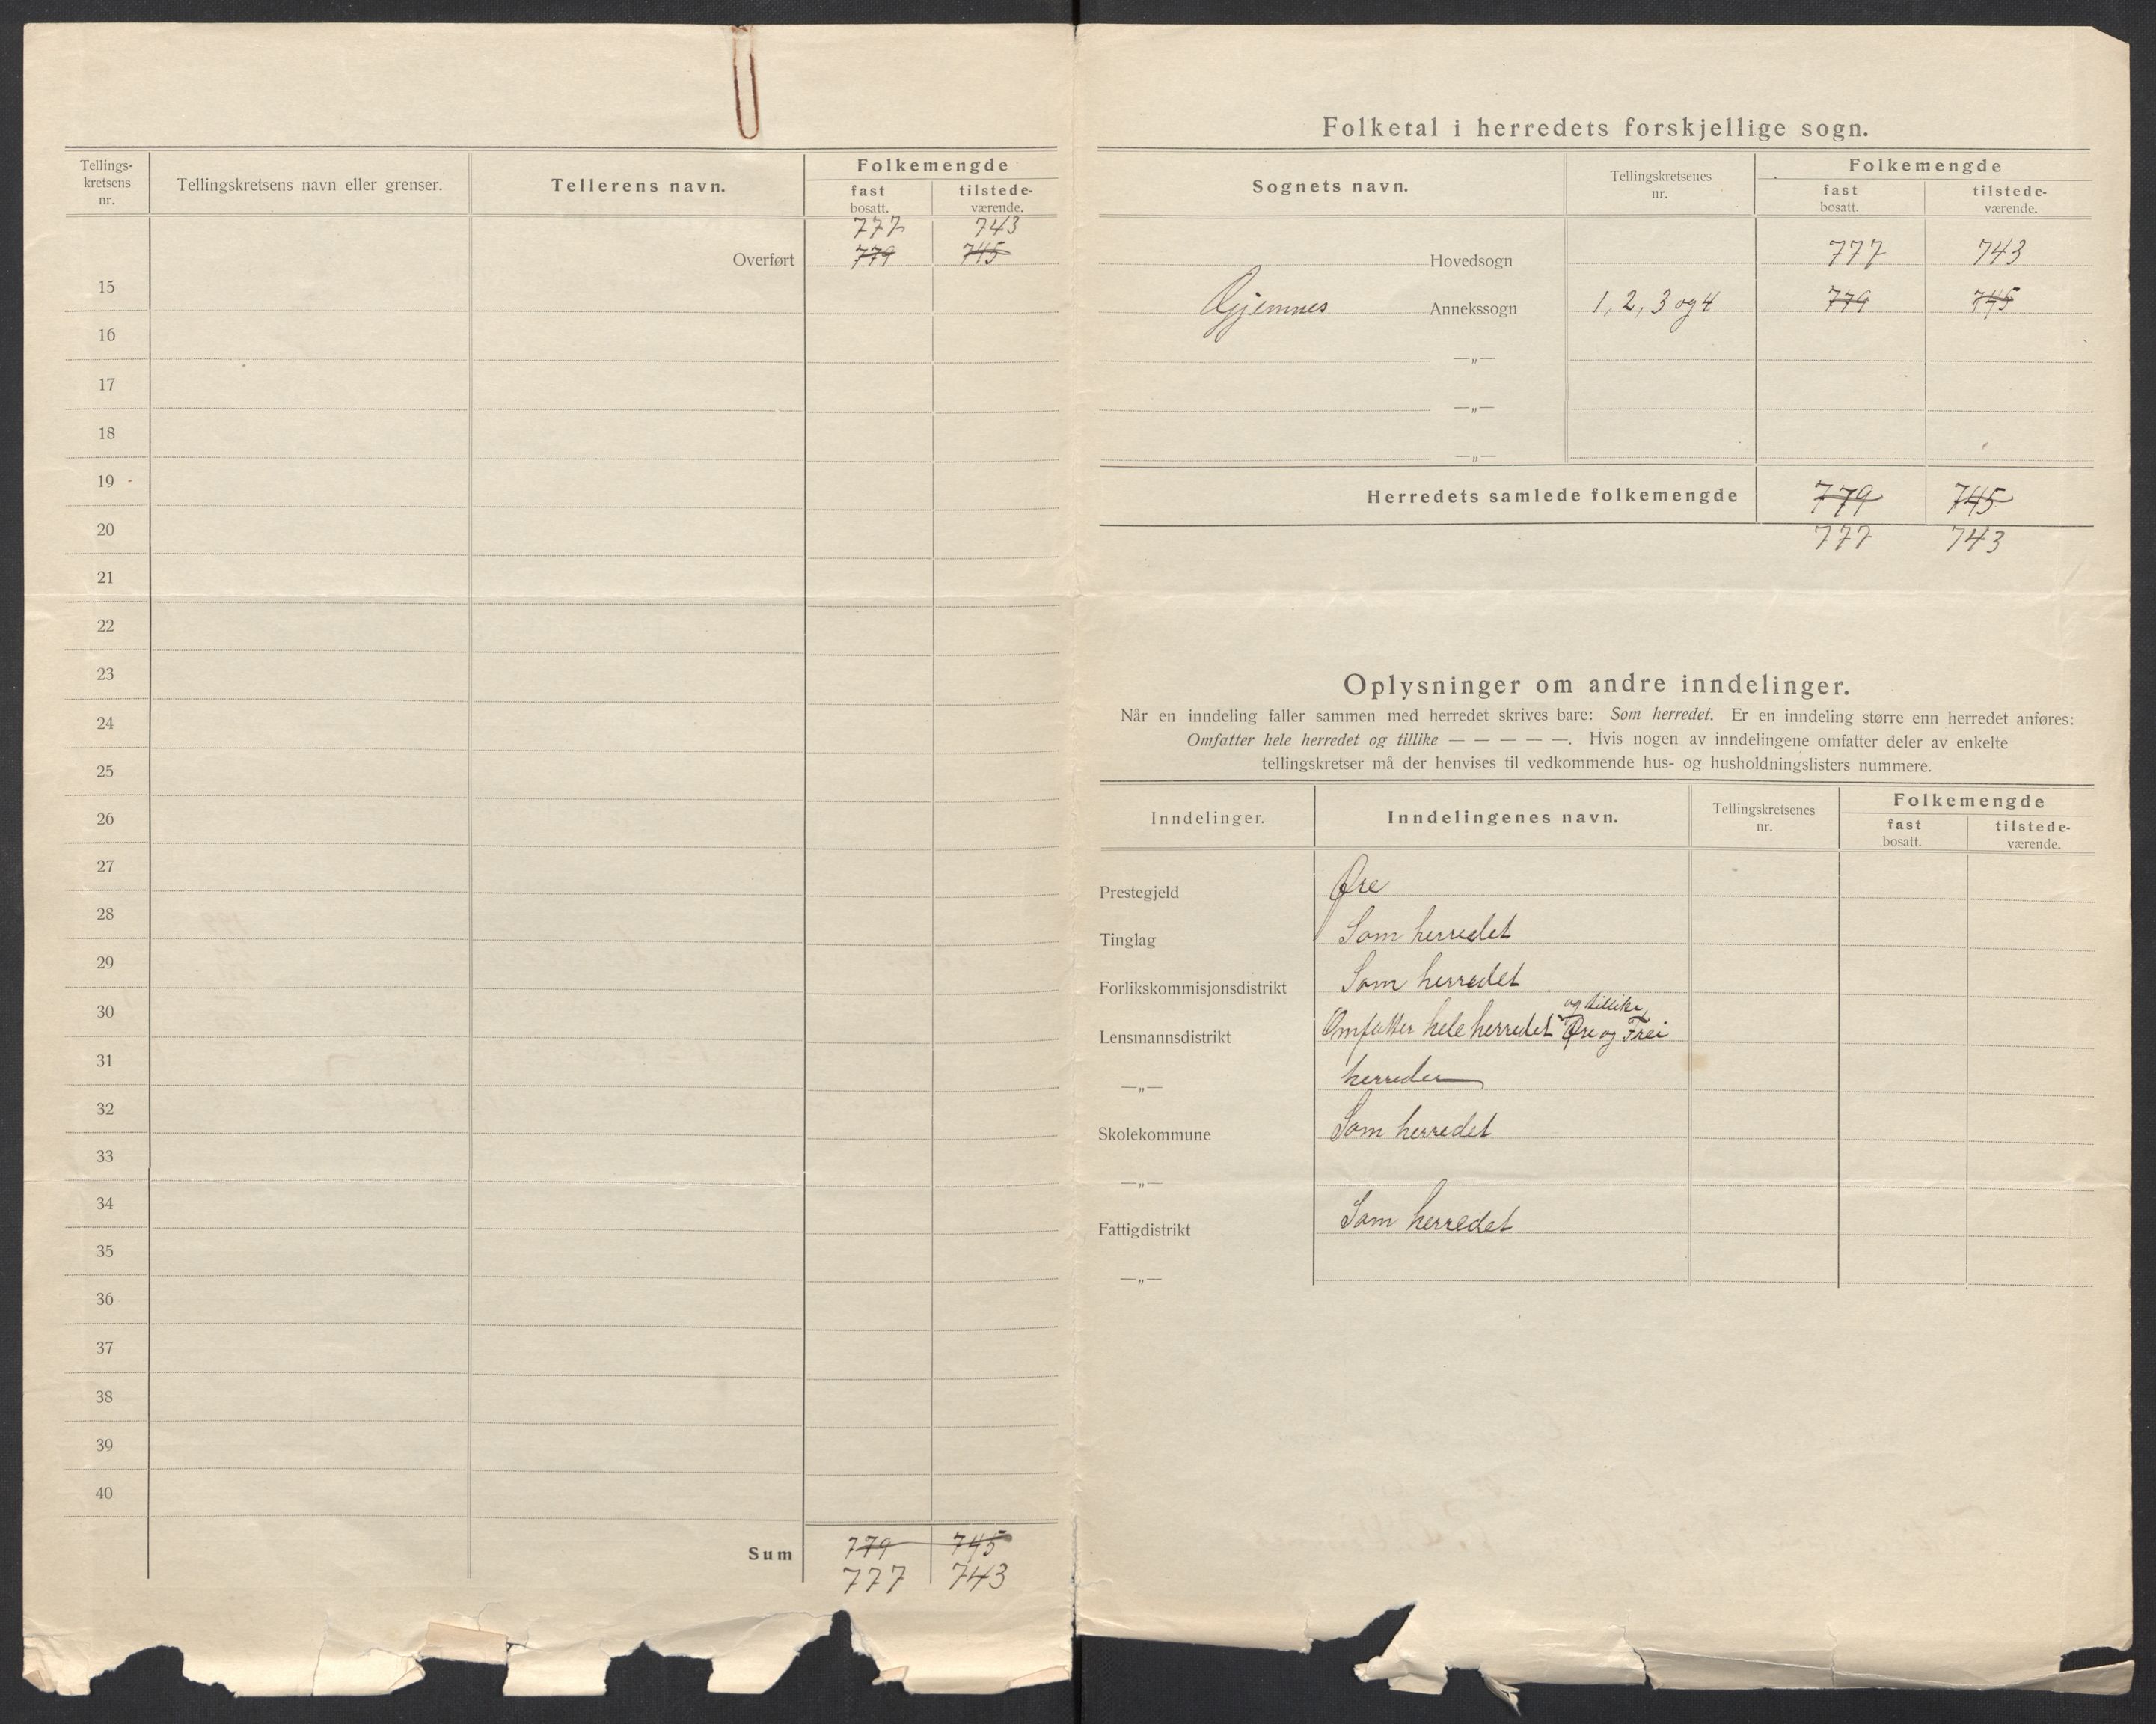 Tellings-
kretsens
nr.
Tellingskretsens navn eller grenser.
Tellerens navn.
Folkemengde
fast
bosatt.
tilstede-
værende.
777 743
Overført 779 745
15
16
17
18
19
20
21
22
23
24
25
26
27
28
29
30
31
32
33
34
35
36
37
38
39
40
Sum 779 745
777 743
Folketal i herredets forskjellige sogn.
Sognets navn.
Tellingskretsenes
nr.
Folkemengde
fast
bosatt.
tilstede-
værende.
Hovedsogn 777 743
Gjemnes Annekssogn 1, 2, 3 og 4 779 745
—„—
—„—
—„—
Herredets samlede folkemengde 779 745
777 743
Oplysninger om andre inndelinger.
Når en inndeling faller sammen med herredet skrives bare: Som herredet. Er en inndeling større enn herredet anføres:
Omfatter hele herredet og tillike — — — — —. Hvis nogen av inndelingene omfatter deler av enkelte
tellingskretser må der henvises til vedkommende hus- og husholdningslisters nummere.
Inndelinger.
Inndelingenes navn.
Tellingskretsenes
nr.
Folkemengde
fast
bosatt.
tilstede-
værende.
Prestegjeld Øre
Tinglag Som herredet
Forlikskommisjonsdistrikt Som herredet
og tillike
Lensmannsdistrikt Omfatter hele herredet Øre og Frei
—„— herreder
Skolekommune Som herredet
—„—
Fattigdistrikt Som herredet
—„—